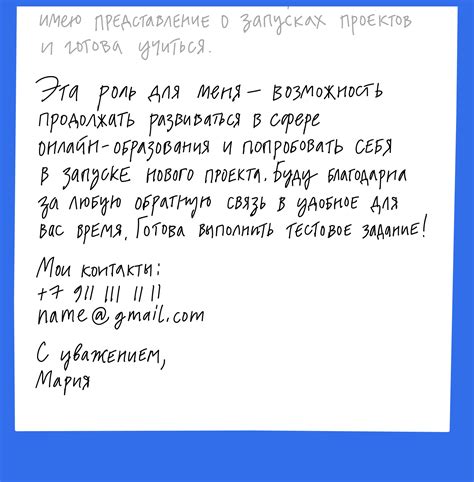 имею представление о запусках проектов
и готова учиться.
Эта роль для меня — возможность
продолжать развиваться в сфере
онлайн-образования и попробовать себя
в запуске нового проекта. Буду благодарна
за любую обратную связь в удобное для
вас время. Готова выполнить тестовое задание!
Мои контакти:
+7 911 111 11 11
name@gmail.com
С уважением,
Мария